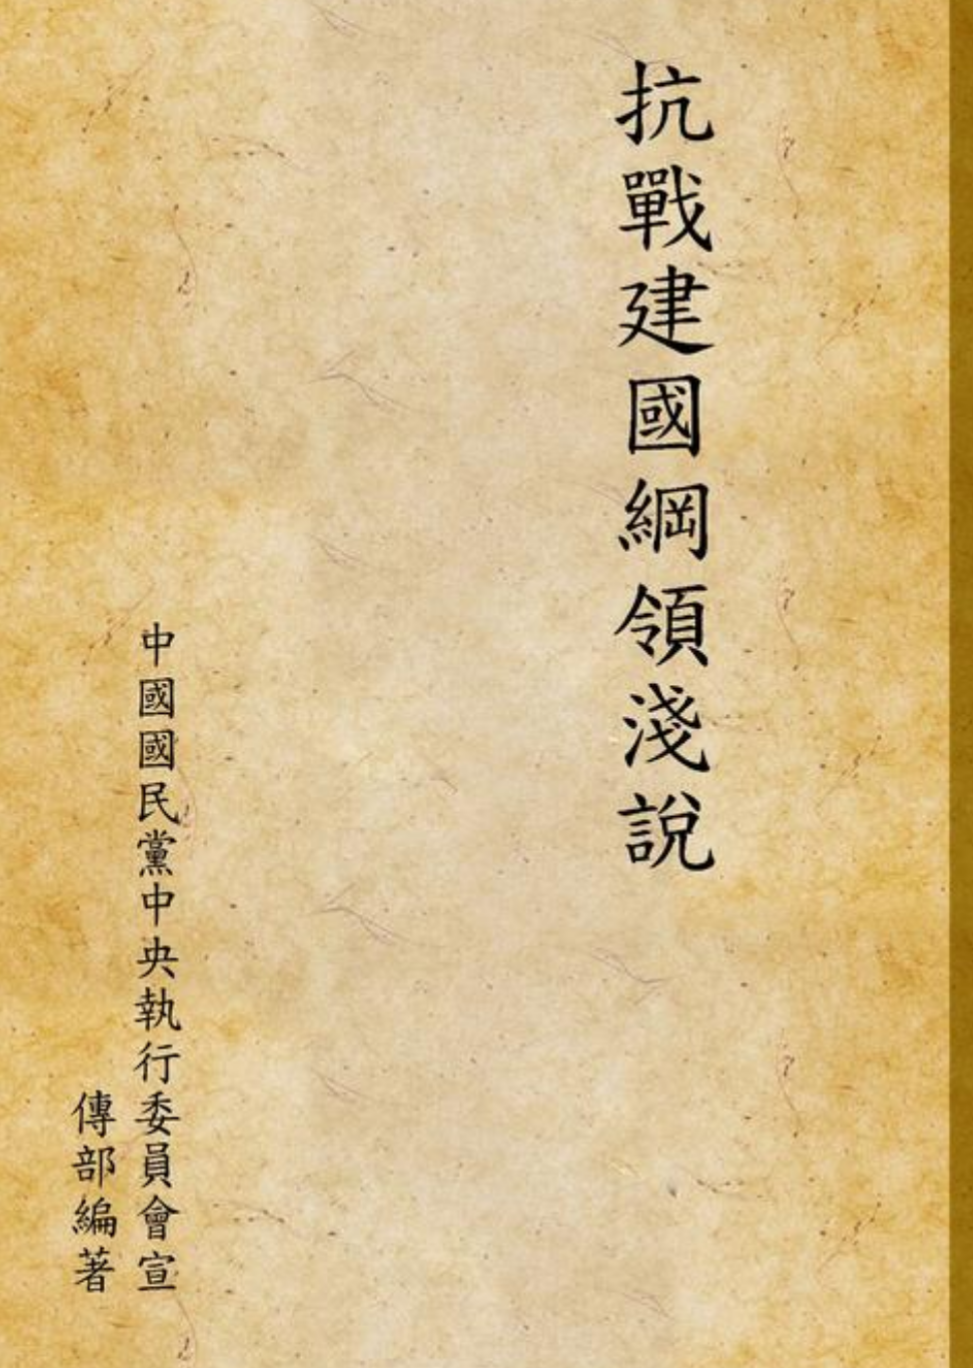 抗戰建國綱領淺說
中國國民黨中央執行委員會宣
傳部編著